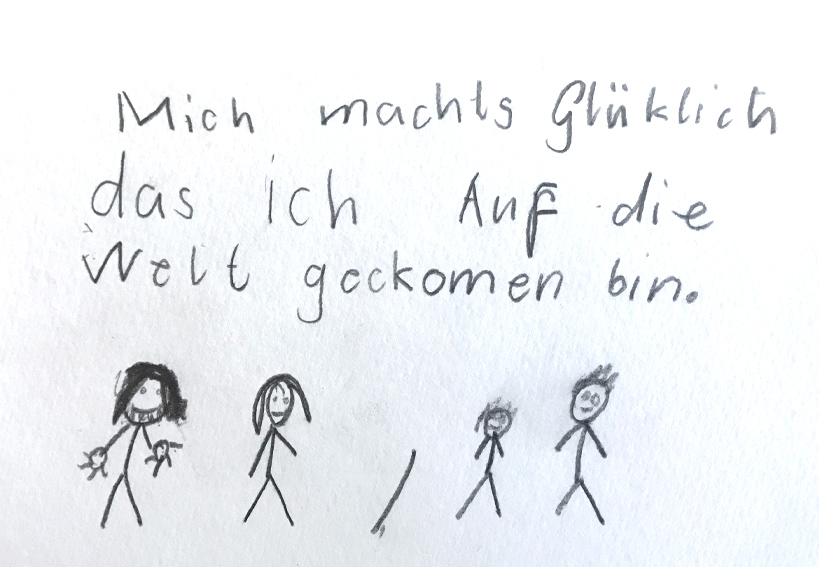 Mich machts Glüklich
das ich Auf die
Welt geckomen bin.